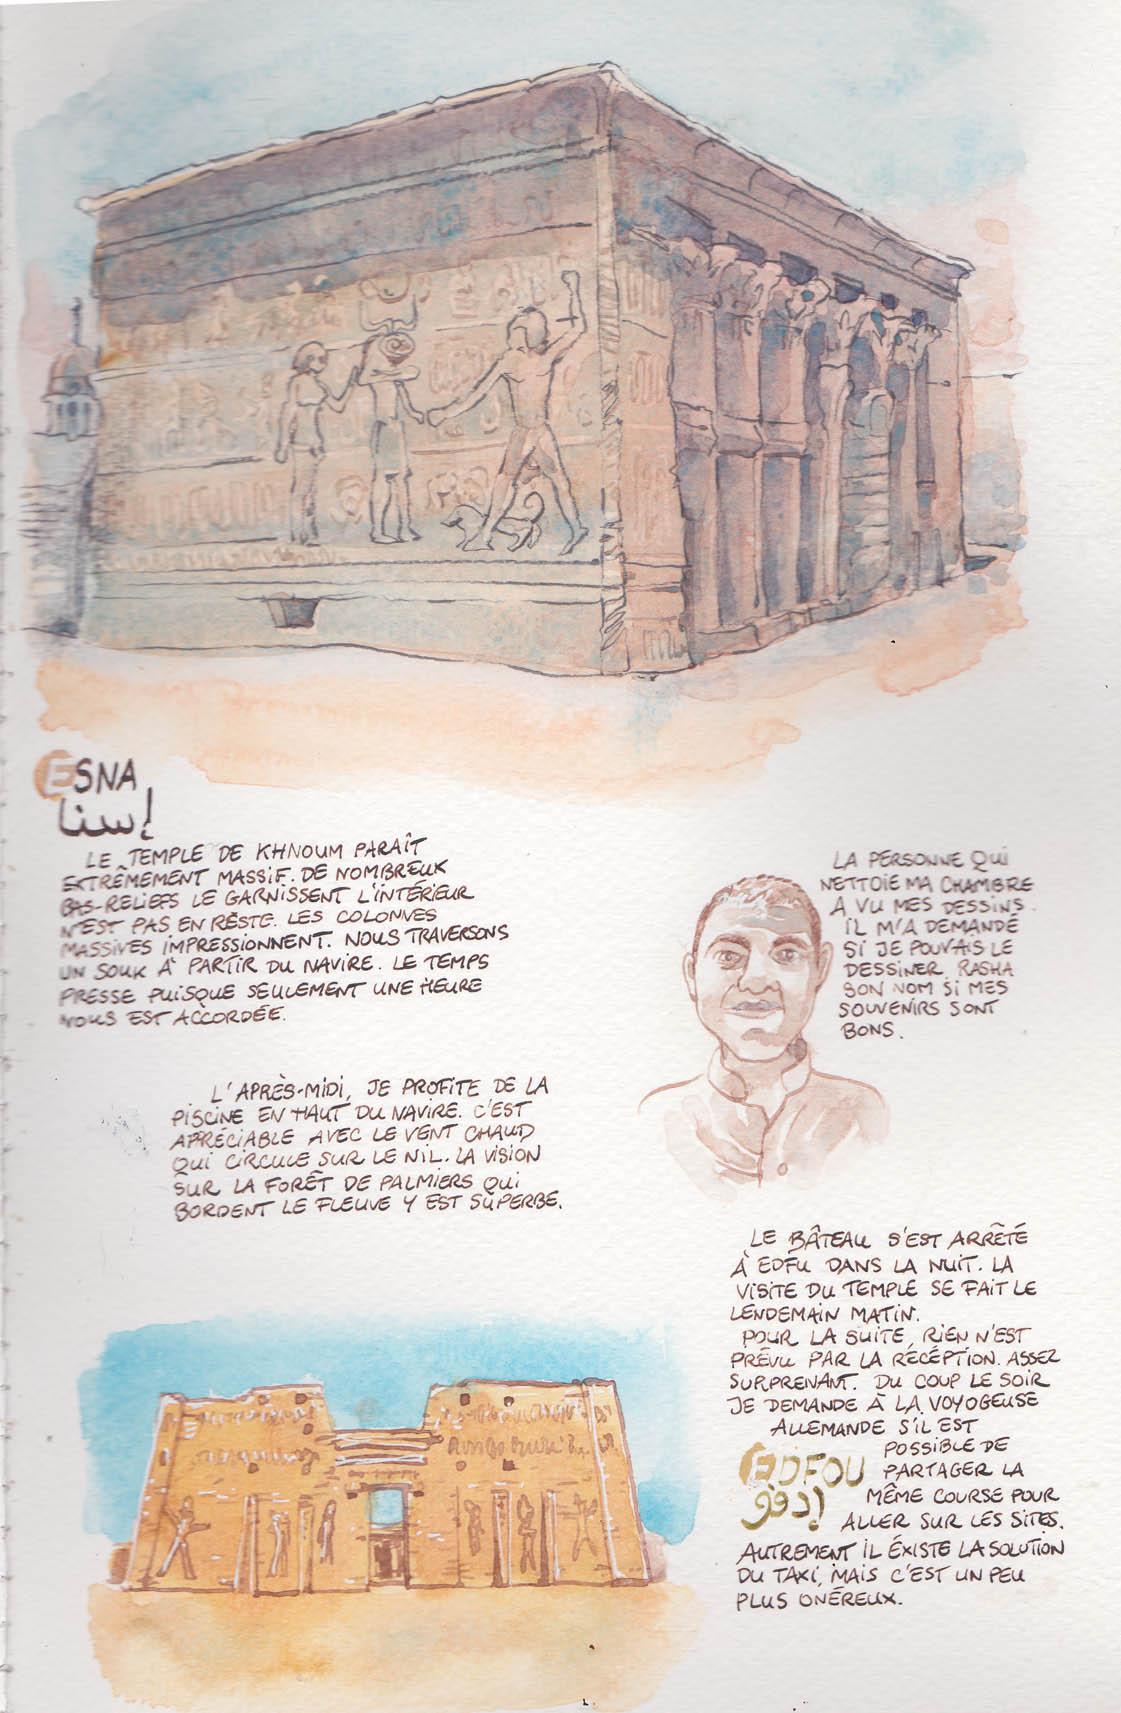 ESNA
إسنا
LE TEMPLE DE KHNOUM PARAÎT
EXTRÊMEMENT MASSIF. DE NOMBREUX
BAS-RELIEFS LE GARNISSENT L'INTÉRIEUR
N'EST PAS EN RESTE. LES COLONNES
MASSIVES IMPRESSIONNENT. NOUS TRAVERSONS
UN SOUK À PARTIR DU NAVIRE. LE TEMPS
PRESSE PUISQUE SEULEMENT UNE HEURE
NOUS EST ACCORDÉE.
LA PERSONNE QUI
NETTOIE MA CHAMBRE
A VU MES DESSINS.
IL M'A DEMANDÉ
SI JE POUVAIS LE
DESSINER. RASHA
SON NOM SI MES
SOUVENIRS SONT
BONS.
L'APRÈS-MIDI, JE PROFITE DE LA
PISCINE EN HAUT DU NAVIRE. C'EST
APPRÉCIABLE AVEC LE VENT CHAUD
QUI CIRCULE SUR LE NIL. LA VISION
SUR LA FORÊT DE PALMIERS QUI
BORDENT LE FLEUVE Y EST SUPERBE.
LE BÂTEAU S'EST ARRÊTÉ
À EDFU DANS LA NUIT. LA
VISITE DU TEMPLE SE FAIT LE
LENDEMAIN MATIN.
POUR LA SUITE, RIEN N'EST
PRÉVU PAR LA RÉCÉPTION. ASSEZ
SURPRENANT. DU COUP LE SOIR
JE DEMANDE À LA VOYOGEUSE
ALLEMANDE S'IL EST
POSSIBLE DE
PARTAGER LA
MÊME COURSE POUR
ALLER SUR LES SITES.
AUTREMENT IL ÉXISTE LA SOLUTION
DU TAXI, MAIS C'EST UN PEU
PLUS ONÉREUX.
EDFOU
إدفو